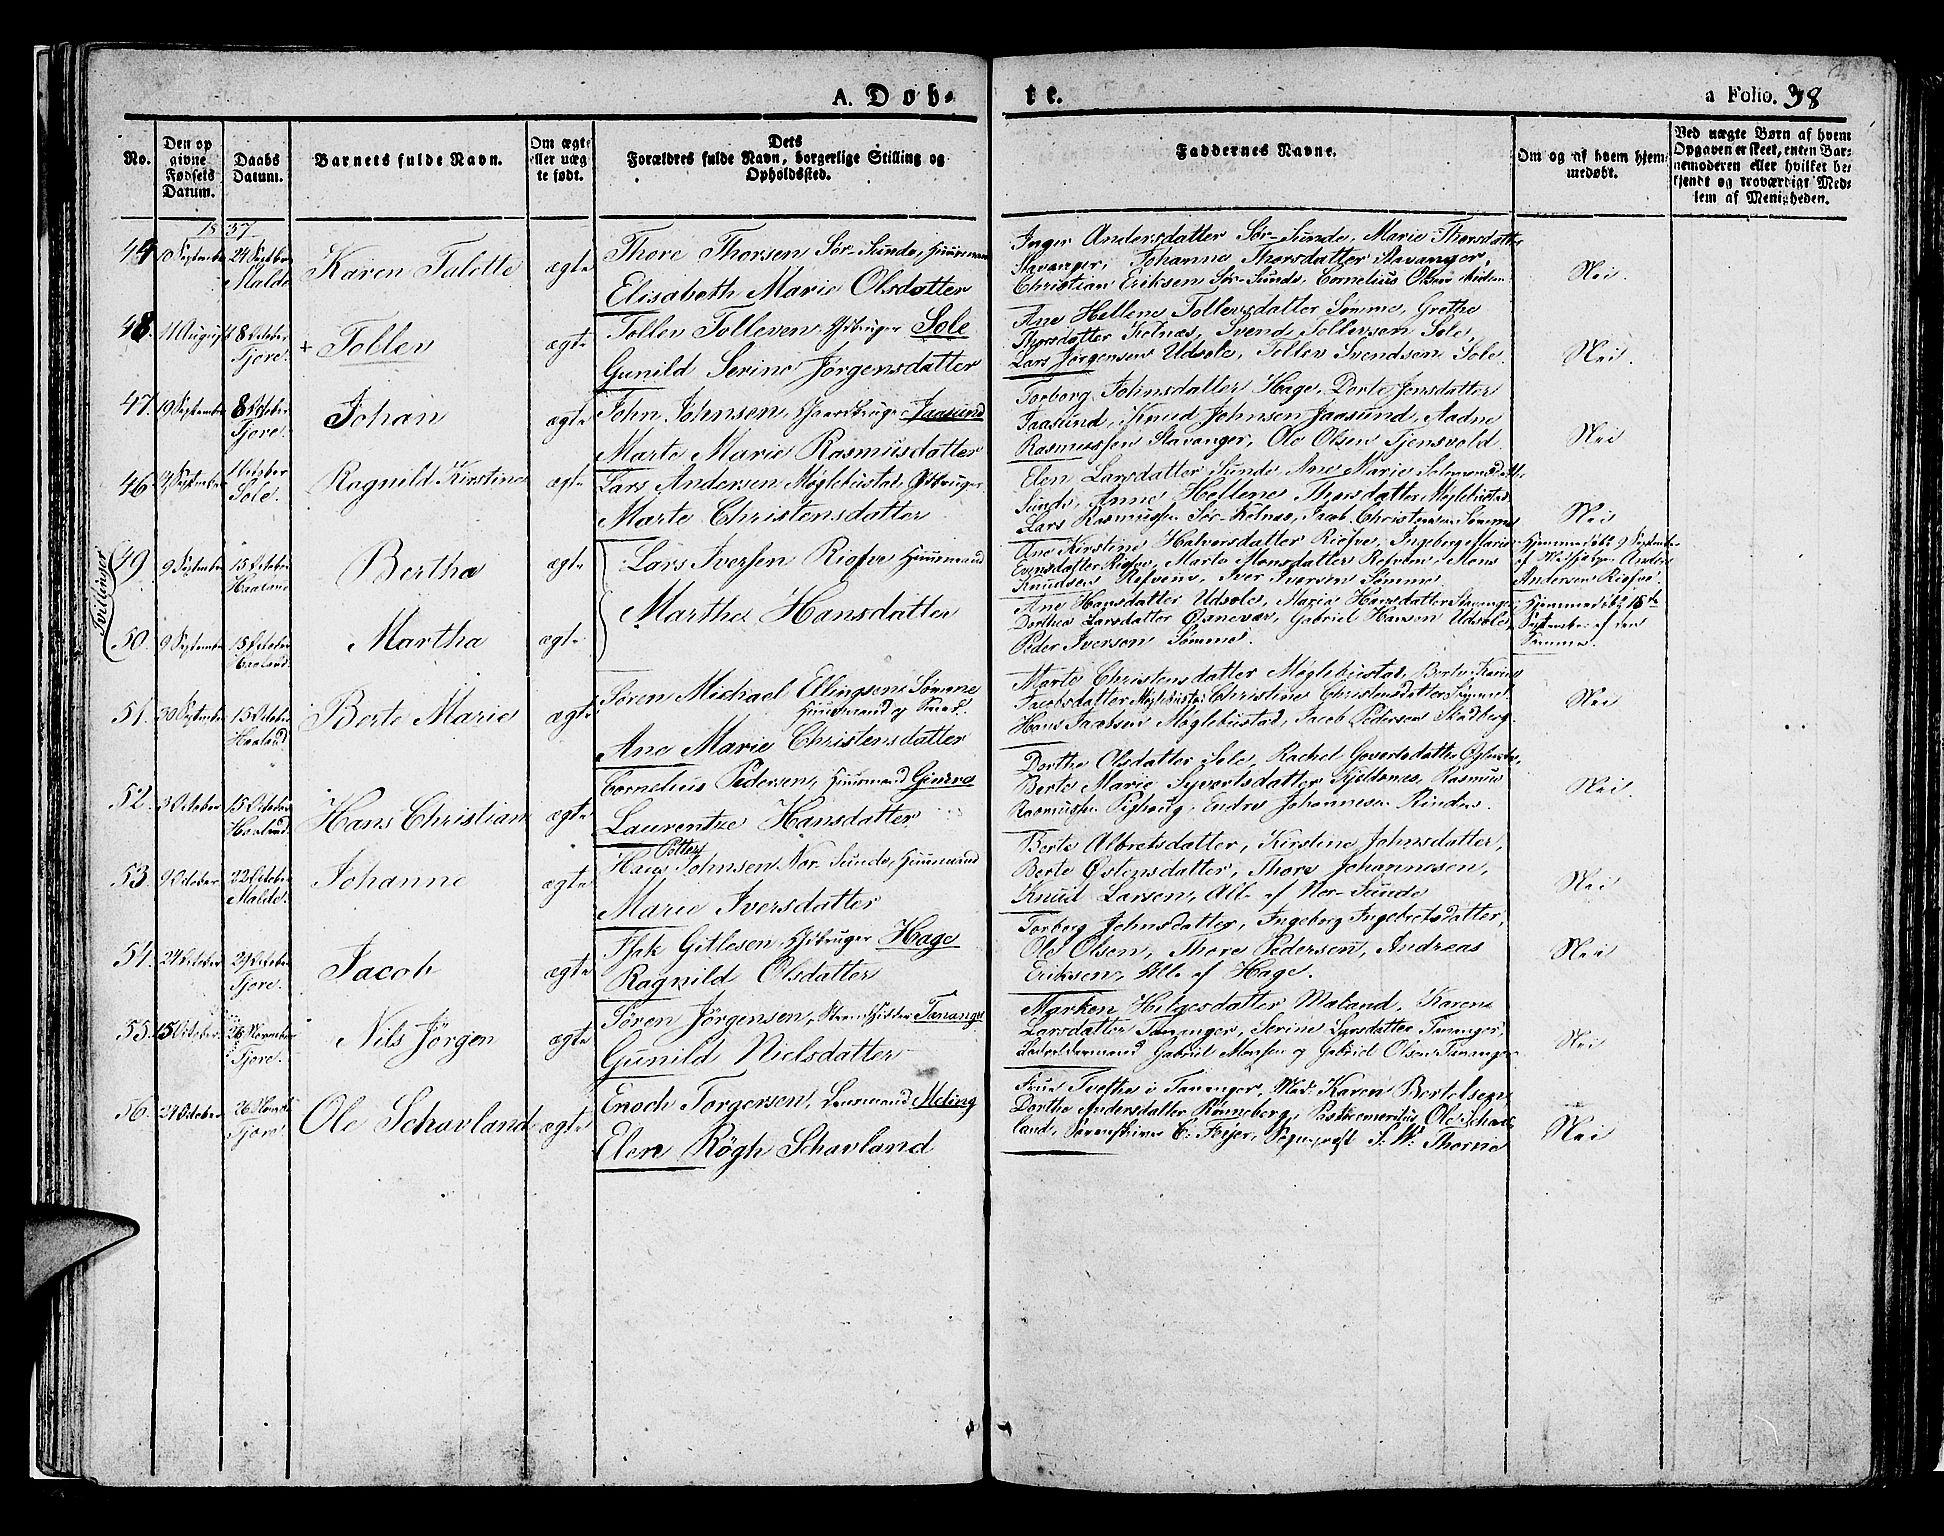 A. Døb-
te.
a Folio. 38
No.
Den op
givne
Fødsels
Datum.
Daabs
Datum.
Barnets fulde Navn.
Om ægte
eller uæg
te født.
Dets
Forældres fulde Navn, borgerlige Stilling og
Opholdssted.
Faddernes Navne.
Om og af hvem hjem
medøbt.
Ved uægte Børn af hvem
Opgaven er skeet, enten Bar-
nemoderen eller hvilket be
kjendt og troværdigt Med-
lem af Menigheden.
1837
44 10 September 24 Septber
Malde
Karen Talette
ægte
Thore Thorsen Sør-Sunde, Huusmand
Elisabeth Marie Olsdatter
Inger Andersdatter Sør-Sunde, Marie Thorsdatter
Stavanger, Johanne Thorsdatter Stavanger,
Christian Eriksen Sør-Sunde, Cornelius Olsen
Nei.
48. 11 August 8 October
Tjore.
+ Tollev
ægte
Tollev Tolleven Gbruger Sole
Gunild Serine Jørgensdatter
Ane Hellene Tollevsdatter Sømme, Grethe
Thorsdatter Kolnæs, Svend Tollevsen Sole,
Lars Jørgensen Udsole, Tollev Svendsen Sole.
Nei.
47. 19 September 8 October
Tjore.
Johan
ægte
John Johnsen, Gaardbruger Jaasund
Marte Marie Rasmusdatter
Torborg Johnsdatter Hage, Dorte Jensdatter
Jaasund, Knud Johnsen Jaasund, Aadne
Rasmussen Stavanger, Ole Olsen Tjensvold
Nei
46 September October
Sole.
Ragnild Kirstine
ægte
Lars Andersen Møglebustad Gbruger
Marte Christensdatter
Elen Larsdatter Sunde Ane Marie
Sunde, Anne Hellene Thorsdatter Møglebustad
Lars Rasmussen Sør-Kolnæs, Jacob Christensen Sømme
Nei
Tvillinger
49. 9 September 15 October
Haaland
Bertha
ægte
Lars Iversen Riofve Huusmand
Marthe Hansdatter
Ane Kirstine Halversdatter Riofve, Ingeborg Marie
Evensdatter Riofve, Marte Monsdatter Refvem, Mons
Knudsen Refvem, Iver Iversen Sømme.
Hjemmedøbt 9 September
af Andreas
Andersen Riofve.
50. 9 September 15 October
Haaland.
Martha
ægte
Ane Hansdatter Udsole, Maria Hansdatter Stavanger,
Dorthea Larsdatter Gimnevær, Gabriel Hansen Udsole,
Peder Iversen Sømme.
Hjemmedøbt 15de
September af den
Samme.
51. 30 September 15 October
Haaland
Berte Marie
ægte
Søren Michael Ellingsen Sømme
Huusmand og Smed.
Ane Marie Christensdatter
Marte Christensdatter Møglebustad, Berte Karine
Jacobsdatter Møglebustad Christine Christensdatter Sømme
Hans Jacobsen Møglebustad, Jacob Pedersen Skadberg.
Nei
52. 3 October 15 October
Haaland.
Hans Christian
ægte
Cornelius Pedersen, Huusmand Gimre
Laurentze Hansdatter
Dorthe Olsdatter Sole, Rachel Govertsdatter
Berte Marie Syvertsdatter Kjeldenes, Rasmus
Rasmussen, Endre Johannesen Rindes.
Nei.
53. 9 October 22 October
Malde.
Johanne
ægte
Hans Potter Johnsen Nor-Sunde, Huusmand
Marie Iversdatter
Berte Albretsdatter, Kirstine Johnsdatter,
Berte Østensdatter, Thore Johannesen,
Knud Larsen, Alle af Nor-Sunde
Nei
54. 24 October 29 October
Tjore.
Jacob
ægte
Isak Gitlesen Gbruger Hage
Ragnild Olsdatter
Torborg Johnsdatter, Ingeborg Ingebretsdatter,
Ole Olsen, Thore Pedersen, Andreas
Eriksen, Alle af Hage.
Nei
55. 15 October 26 November
Tjore.
Nils Jørgen
ægte
Søren Jørgensen, Strandsidder Tananger
Gunild Nielsdatter
Marken Helgesdatter Meland, Karen
Larsdatter Tananger, Serine Larsdatter Tananger,
Lodsoldermand Gabriel Monsen og Gabriel Olsen Tananger
Nei
56. 24 October 26 Novemb
Tjore
Ole Schavland
ægte
Enoch Torgersen, Lensmand Meling
Elen Røgh Schavland
Frue Tvethe i Tananger, Mad: Karen Bertelsen
Dorthe Andersdatter Rønneberg, Pastor emeritus Ole Schav
land, Sorenskriver C: Feyer, Sogneprest S. W: Thorne
Nei